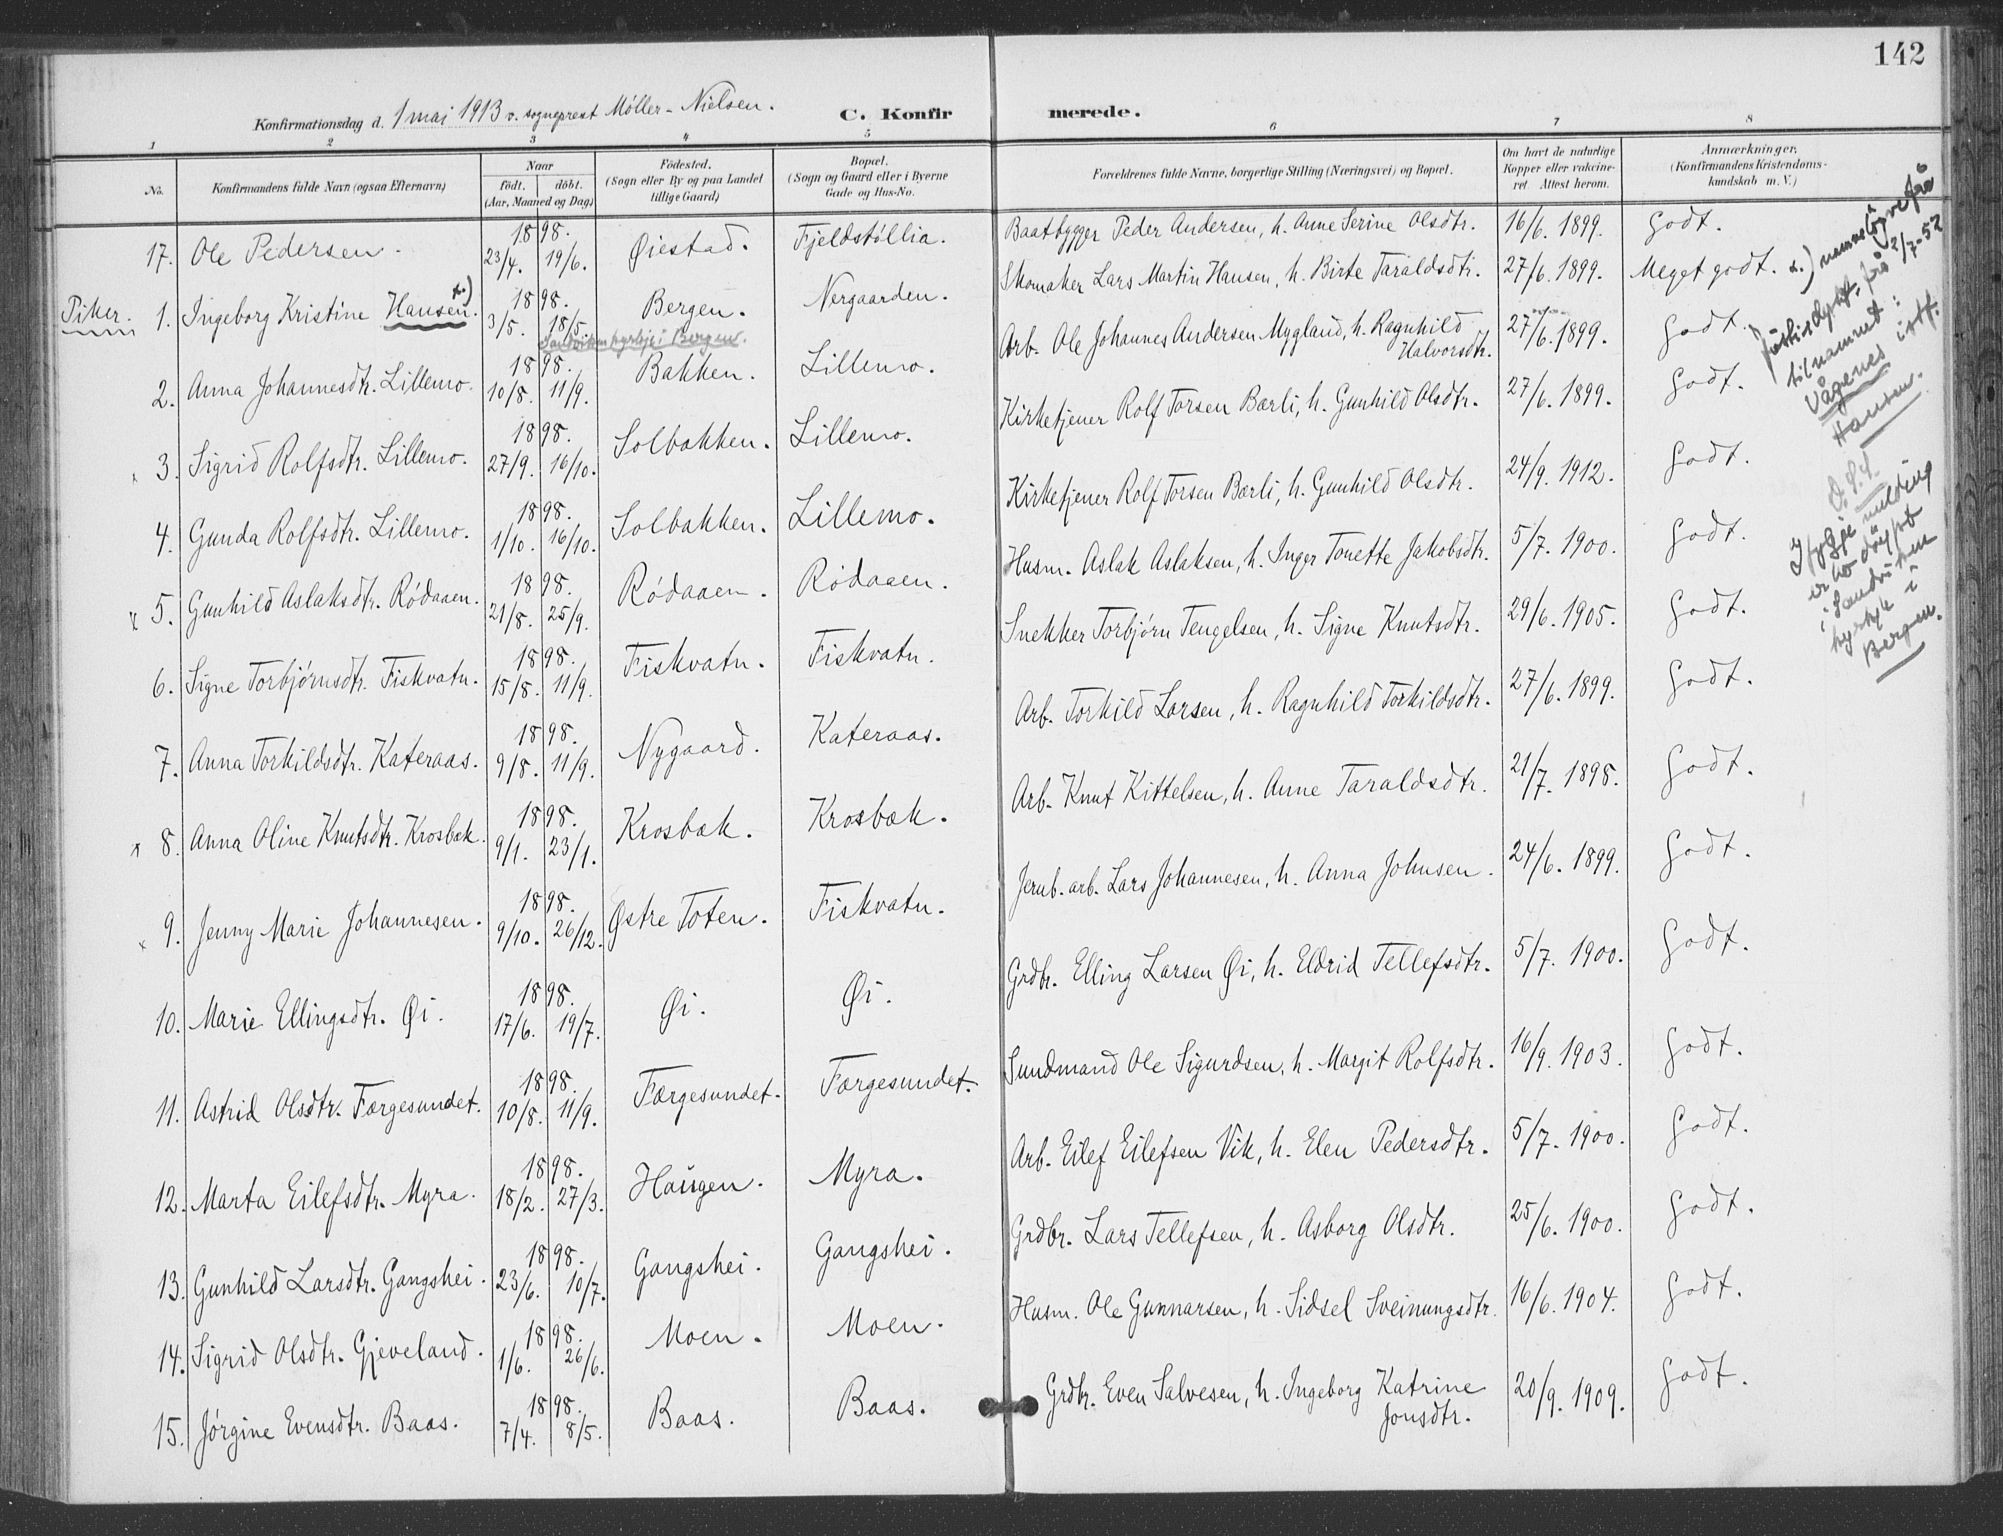 142
Konfirmationsdag d. 1 mai 1913 v. sogneprest Møller-Nielsen.
C. Konfir merede.
1 2 3 4 5 6 7 8
No.
Konfirmandens fulde Navn (ogsaa Efternavn)
Naar
födt. döbt.
(Aar, Maaned og Dag)
Födested.
(Sogn eller By og paa Landet
tillige Gaard)
Bopæl.
(Sogn og Gaard eller i Byerne
Gade og Hus-No.
Forældrenes fulde Navne, borgerlige Stilling (Næringsvei) og Bopæl.
Om havt de naturlige
Kopper eller vakcine-
ret Attest herom.
Anmærkninger.
(Konfirmandens Kristendoms-
kundskab m. V.)
17. Ole Pedersen. 1898. 23/4. 19/6. Øiestad. Fjeldstøllia. Baatbygger Peder Andersen, h. Anne Serine Olsdtr. 16/6. 1899. Godt.
Piker. 1. Ingeborg Kristine Hansen. x.) 1898. 3/5. 18/5. Bergen. Nergaarden. Skomaker Lars Martin Hansen, h. Birte Taraldsdtr. 27/6. 1899. Meget godt. x.)
Sandviken kyrkje i Bergen.
2. Anna Johannesdtr. Lillemo. 1898. 10/8. 11/9. Bakken. Lillemo. Arb. Ole Johannes Andersen Mygland, h. Ragnhild
Halvorsdtr. 27/6. 1899. Godt.
3. Sigrid Rolfsdtr. Lillemo. 1898. 27/9. 16/10. Solbakken. Lillemo. Kirketjener Rolf Torsen Bærli, h. Gunhild Olsdtr. 27/6. 1899. Godt.
4. Gunda Rolfsdtr. Lillemo. 1898. 1/10. 16/10. Solbakken. Lillemo. Kirketjener Rolf Torsen Bærli, h. Gunhild Olsdtr. 24/9. 1912. Godt.
5. Gunhild Aslaksdtr. Rødaaen. 1898. 21/8. 25/9. Rødaaen. Rødaaen. Husm. Aslak Aslaksen, h. Inger Tonette Jakobsdtr. 5/7. 1900. Godt.
6. Signe Torbjørnsdtr. Fiskvatn. 1898. 15/8. 11/9. Fiskvatn. Fiskvatn. Snekker Torbjørn Tengelsen, h. Signe Knutsdtr. 29/6. 1905. Godt.
7. Anna Torkildsdtr. Kateraas. 1898. 9/8. 11/9. Nygaard. Kateraas. Arb. Torkild Larsen, h. Ragnhild Torkildsdtr. 27/6. 1899. Godt.
8. Anna Oline Knutsdtr. Krosbæk. 1898. 9/1. 23/1. Krosbæk. Krosbæk. Arb. Knut Kittelsen, h. Anne Taraldsdtr. 21/7. 1898. Godt.
9. Jenny Marie Johannesen. 1898. 9/10. 26/12. Østre Toten. Fiskvatn. Jernb. arb. Lars Johannesen, h. Anna Johnsen. 24/6. 1899. Godt.
10. Marie Ellingsdtr. Øi. 1898. 17/6. 19/7. Øi. Øi. Grdbr. Elling Larsen Øi, h. Eldrid Tellefsdtr. 5/7. 1900. Godt.
11. Astrid Olsdtr. Færgesundet. 1898. 10/8. 11/9. Færgesundet. Færgesundet. Sundmand Ole Sigurdsen, h. Margit Rolfsdtr. 16/9. 1903. Godt.
12. Marta Eilefsdtr. Myra. 1898. 18/2. 27/3. Haugen. Myra. Arb. Eilef Eilefsen Vik, h. Elen Pedersdtr. 5/7. 1900. Godt.
13. Gunhild Larsdtr. Gangshei. 1898. 23/6. 10/7. Gangshei. Gangshei. Grdbr. Lars Tellefsen, h. Asborg Olsdtr. 25/6. 1900. Godt.
14. Sigrid Olsdtr. Gjeveland. 1898. 1/6. 26/6. Moen. Moen. Husm. Ole Gunnarsen, h. Sidsel Sveinungsdtr. 16/6. 1904. Godt.
15. Jørgine Evensdtr. Baas. 1898. 7/4. 8/5. Baas. Baas. Grdbr. Even Salvesen, h. Ingeborg Katrine
Jonsdtr. 20/9. 1909. Godt.
namneløyve frå
Justisdept. frå 2/7-52
tilnamnet:
Vågenes istf.
Hansen.
Ifylgje melding
er ho døypt
i Sandviken
kyrkje i
Bergen.